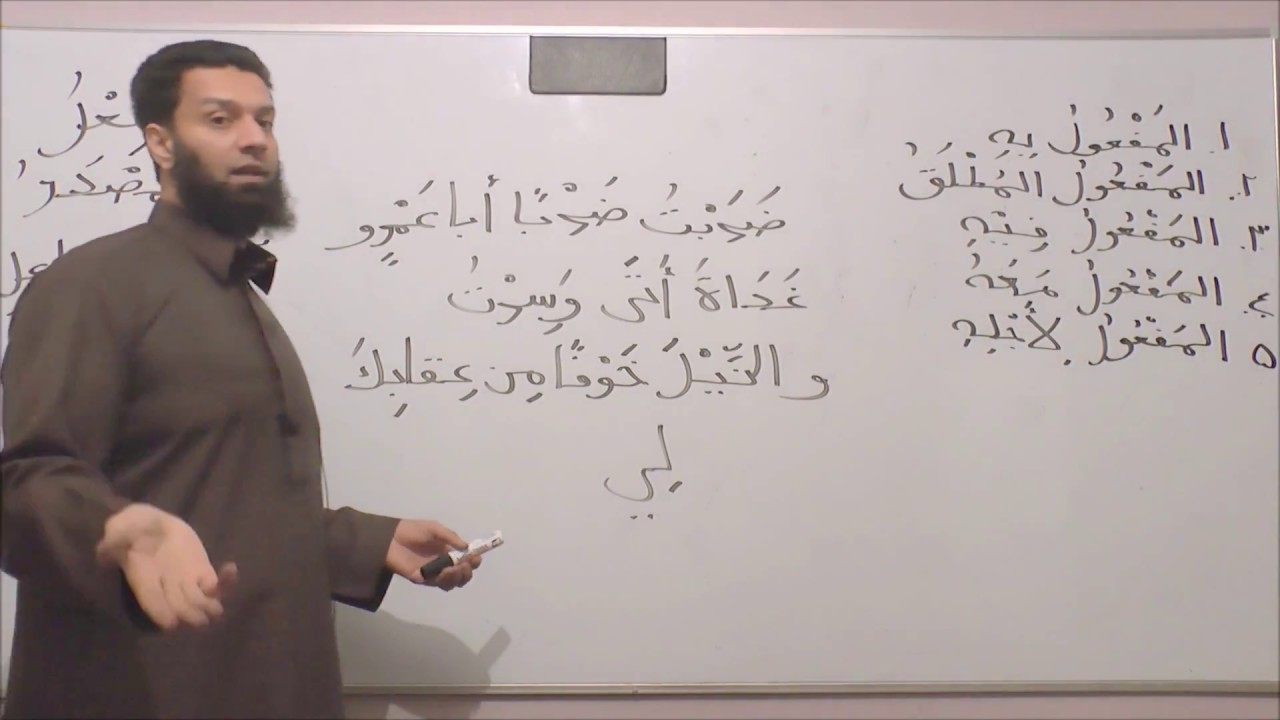 ١. المَفْعُولُ بِهِ
٢. المَفْعُولُ المُطْلَقُ
٣. المَفْعُولُ فِيْهِ
٤. المَفْعُولُ مَعَهُ
٥. المَفْعُولُ لِأَجْلِهِ
ضَرَبْتُ ضَرْبًا أَبا عَمْرٍو
غَدَاةَ أَتَى وَسِرْتُ
و النِّيْلَ خَوْفًا مِن عِقابِكَ
لِي